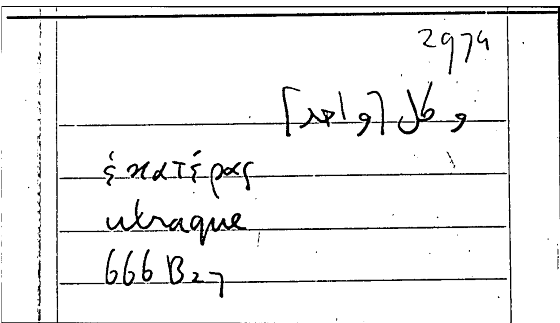 2974
و كل [واحد]
ἑκατέρας
utraque
666 B27